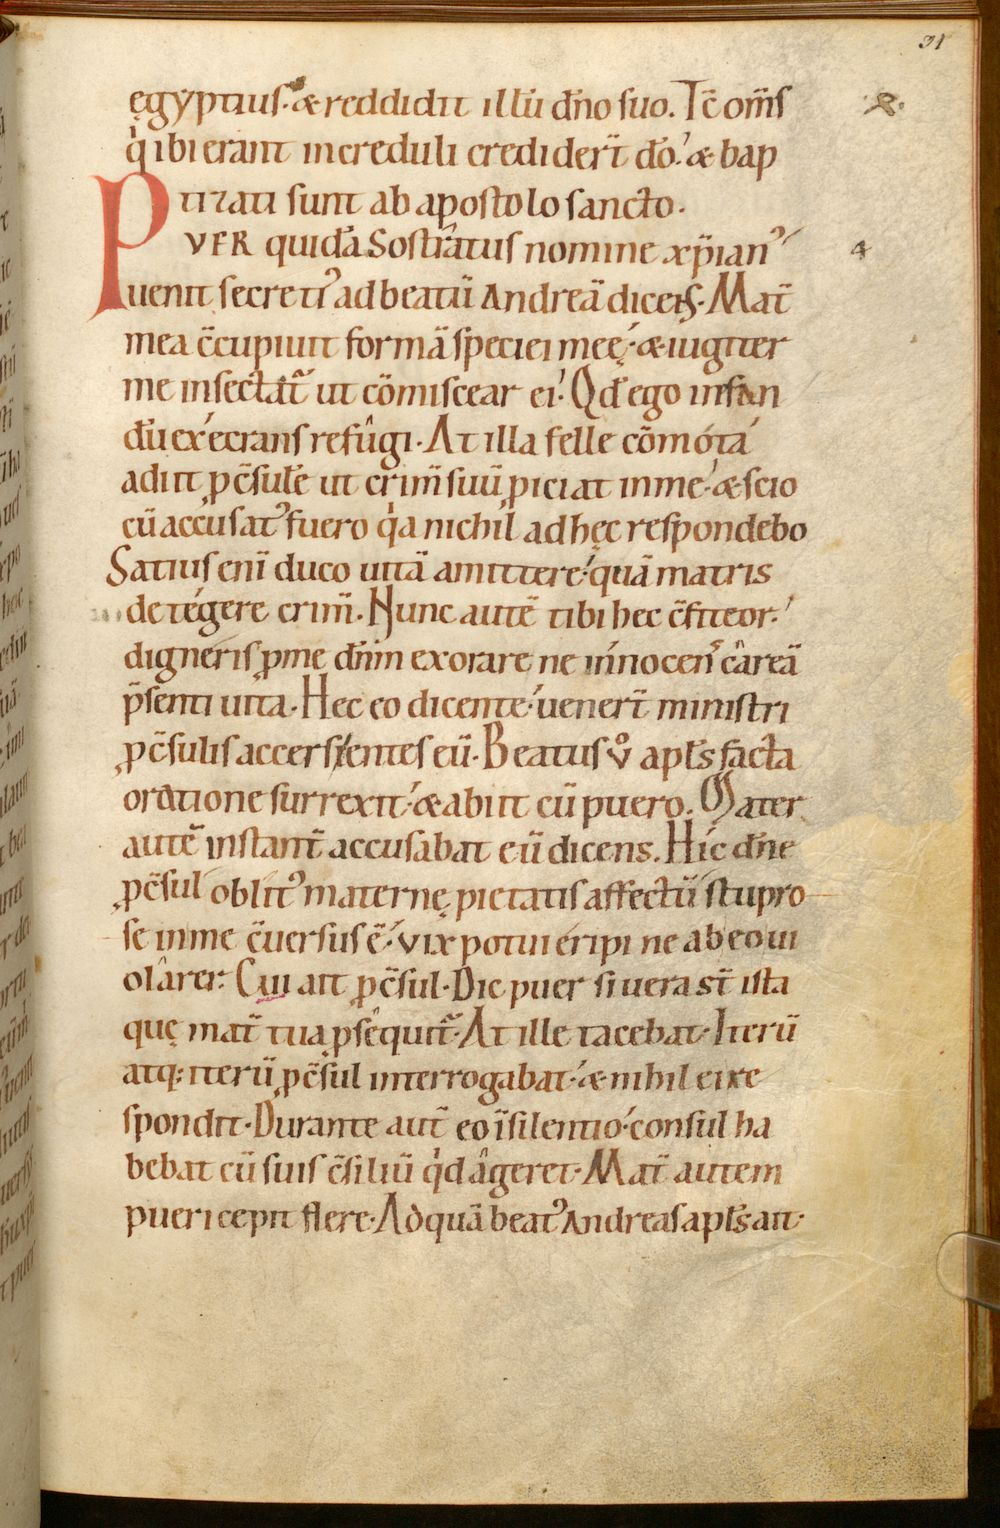 31
ęgyptius· & reddidit illū dn̄o suo. Tc̄ om̄s
qͥ ibi erant increduli credidert̄ dō· & bap
tizati sunt ab apostolo sancto·
PVER quidā Sostratus nomine xp̄ianꝰ 4
uenit secretiꝰ ad beatū Andreā dicens· Mat̄
mea c̄cupiuit formā speciei meę· & iugiter
me insectat̄ ut cōmiscear ei· Qd̄ ego infan
dū exęcrans refugi· At illa felle cōmota
adiit ꝓc̄sulē ut crim̄ suū ꝓiciat in me· & scio
cū accusatꝰ fuero qͥa nichil ad hęc respondebo
Satius eni̅ duco uitā amittere· quā matris
detegere crim̄. Nunc autē tibi hec c̄fiteor·
digneris ꝓ me dn̄m exorare ne innocens careā
p̄senti uita· Hec eo dicente· uenert̄ ministri
ꝓc̄sulis accersientes eū· Beatus vͦ apl̄s facta
oratione surrexit· & abiit cū puero. Mater
autē instant̄ accusabat eū dicens. Hic dn̄e
ꝓc̄sul oblitꝰ maternę pietatis affectū stupro
se in me c̄uersus ē· vix potui eripi ne ab eo ui
olarer· Cui ait ꝓc̄sul· Dic puer si uera st̄ ista
quę mat̄ tua ꝓsequit̄· At ille tacebat· Iterū
atq; iterū ꝓc̄sul interrogabat· & nihil ei re
spondit· Durante aut̄ eo i̅ silentio· consul ha
bebat cū suis c̄siliū qͥd ageret· Mat̄ autem
pueri cepit flere· Ad quā beatꝰ Andreas apl̄s ait·